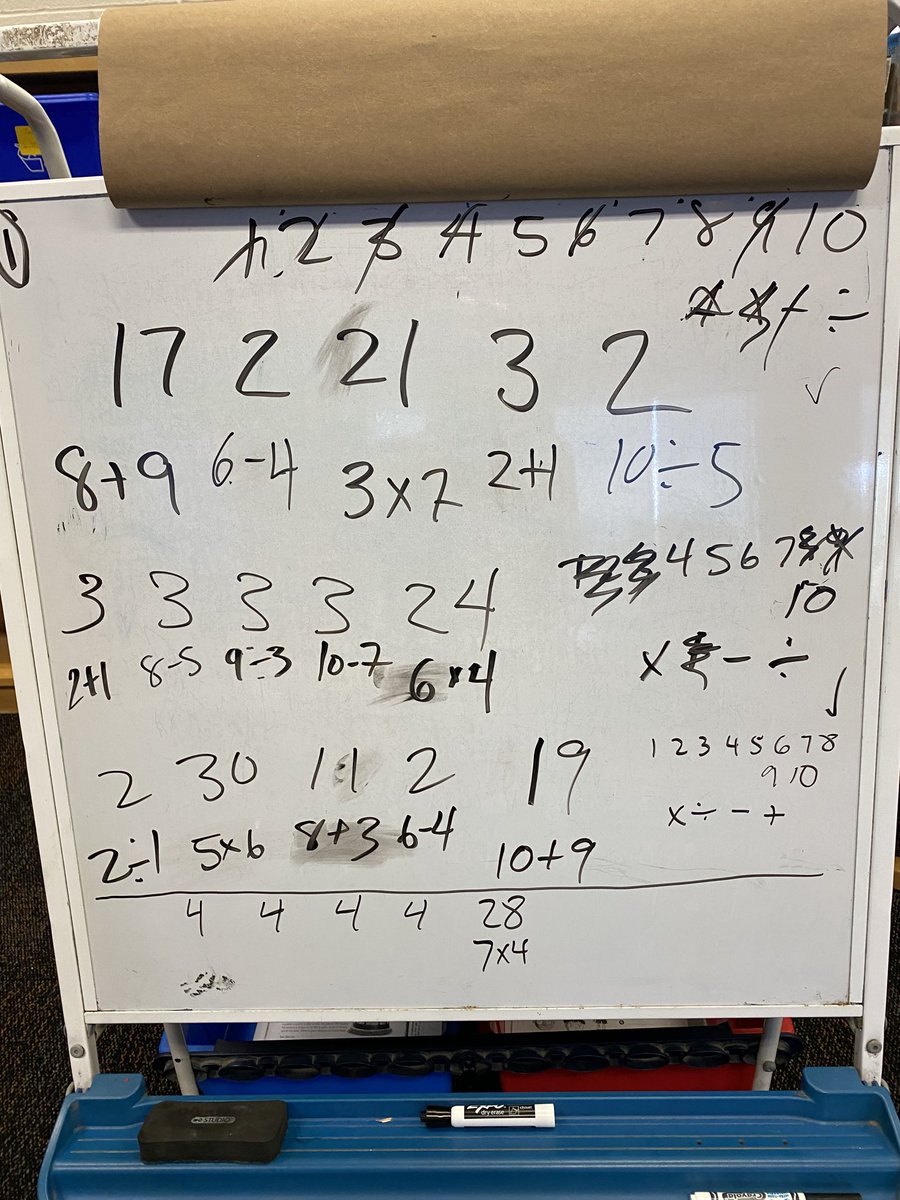 1
1 2 3 4 5 6 7 8 9 10
÷
17 2 21 3 2
✓
8+9 6-4 3×7 2+1 10÷5
4 5 6 7
10
3 3 3 3 24
2+1 8-5 9÷3 10-7 6×4
× - ÷
✓
2 30 11 2 19
1 2 3 4 5 6 7 8
9 10
× ÷ - +
2÷1 5×6 8+3 6-4 10+9
4 4 4 4 28
7×4
STUDIO
EXPO
dry erase
Crayola